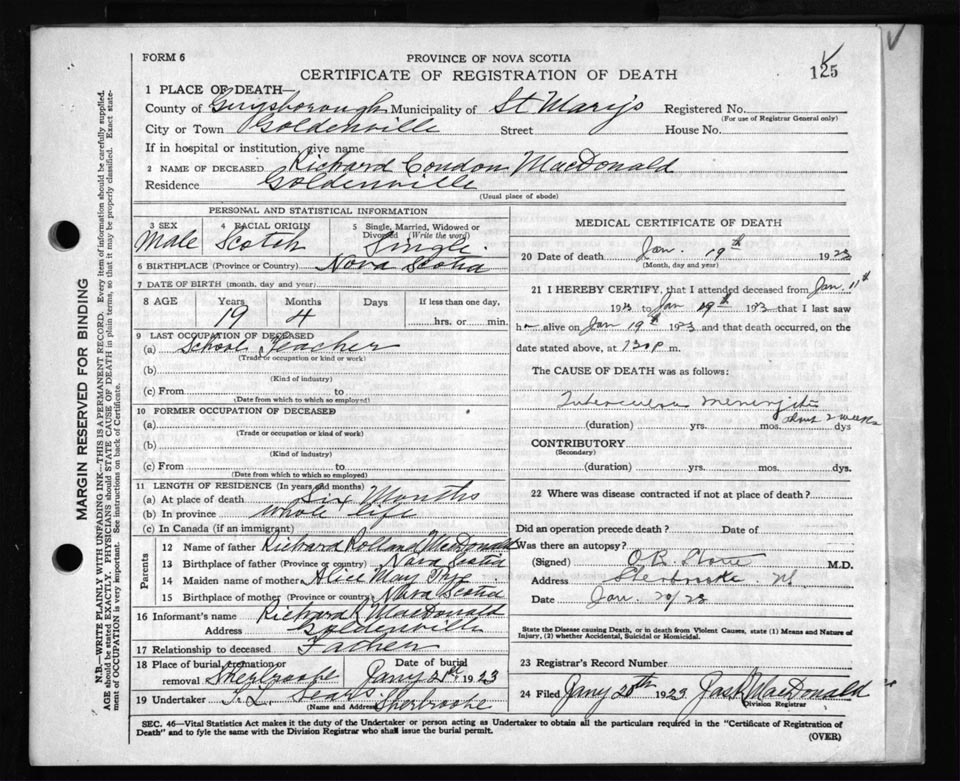 FORM 6
PROVINCE OF NOVA SCOTIA
CERTIFICATE OF REGISTRATION OF DEATH
125
1 PLACE OF DEATH—
County of Guysborough Municipality of St Mary's Registered No.
(For use of Registrar General only)
City or Town Goldenville Street House No.
If in hospital or institution, give name
2 NAME OF DECEASED Richard Condon MacDonald
Residence Goldenville
(Usual place of abode)
PERSONAL AND STATISTICAL INFORMATION
3 SEX Male
4 RACIAL ORIGIN Scotch
5 Single, Married, Widowed or Divorced (Write the word) Single.
6 BIRTHPLACE (Province or Country) Nova Scotia
7 DATE OF BIRTH (month, day and year)
8 AGE Years 19 Months 4 Days If less than one day, hrs. or min.
9 LAST OCCUPATION OF DECEASED
(a) School Teacher
(Trade or occupation or kind or work)
(b)
(Kind of industry)
(c) From to
(Date from which to which so employed)
10 FORMER OCCUPATION OF DECEASED
(a)
(Trade or occupation or kind of work)
(b)
(Kind of industry)
(c) From to
(Date from which to which so employed)
11 LENGTH OF RESIDENCE (In years and months)
(a) At place of death Six Months
(b) In province whole life
(c) In Canada (if an immigrant)
Parents
12 Name of father Richard Rolland MacDonald
13 Birthplace of father (Province or country) Nova Scotia
14 Maiden name of mother Alice May
15 Birthplace of mother (Province or country) Nova Scotia
16 Informant's name Richard R MacDonald
Address Goldenville
17 Relationship to deceased Father
18 Place of burial, cremation or removal Sherbrooke Date of burial Jany 21st 1923
19 Undertaker T. L. Sears Sherbrooke
(Name and Address)
MEDICAL CERTIFICATE OF DEATH
20 Date of death Jan. 19th 1923
(Month, day and year)
21 I HEREBY CERTIFY, that I attended deceased from Jan. 11th
1923 to Jan 19th 1923 that I last saw
h alive on Jan 19th 1923 and that death occurred, on the
date stated above, at 130 P m.
The CAUSE OF DEATH was as follows:
Tubercular meningitis
(duration) yrs. mos. about 2 weeks dys
CONTRIBUTORY
(Secondary)
(duration) yrs. mos. dys.
22 Where was disease contracted if not at place of death?
Did an operation precede death? Date of
Was there an autopsy?
(Signed) M.D.
Address Sherbrooke NS
Date Jan. 20/23
State the Disease causing Death, or in death from Violent Causes, state (1) Means and Nature of
Injury, (2) whether Accidental, Suicidal or Homicidal.
23 Registrar's Record Number
24 Filed Jany 20th 1923 MacDonald
Division Registrar
SEC. 46—Vital Statistics Act makes it the duty of the Undertaker or person acting as Undertaker to obtain all the particulars required in the "Certificate of Registration of
Death" and to fyle the same with the Division Registrar who shall issue the burial permit.
(OVER)
MARGIN RESERVED FOR BINDING
N.B.—WRITE PLAINLY WITH UNFADING INK—THIS IS A PERMANENT RECORD. Every item of information should be carefully supplied.
AGE should be stated EXACTLY. PHYSICIANS should STATE CAUSE OF DEATH in plain terms, so that it may be properly classified. Exact statement of OCCUPATION is very important. See instructions on back of Certificate.